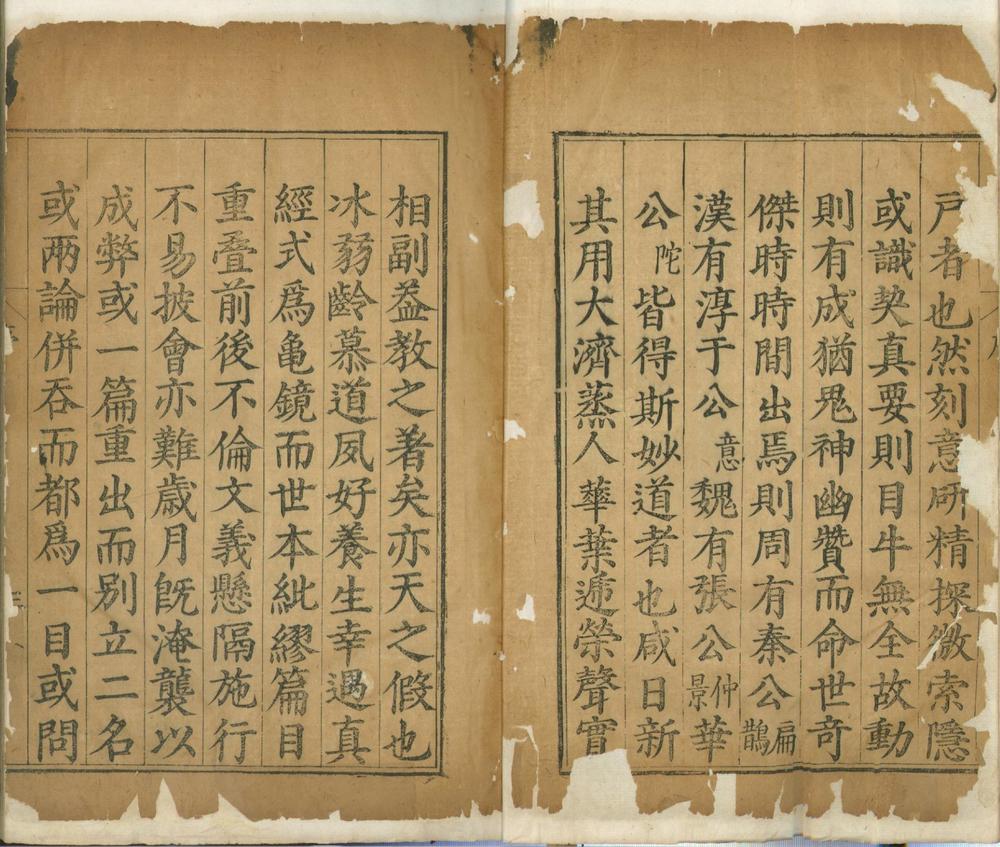 戸者也然刻意研精探微索隱
或識契真要則目牛無全故動
則有成猶鬼神幽贊而命世奇
傑時時間出焉則周有秦公扁鵲
漢有淳于公意魏有張公仲景華
公陀皆得斯妙道者也咸日新
其用大濟蒸人華葉遞榮聲實
相副蓋教之著矣亦天之假也
冰弱齡慕道夙好養生幸遇真
經式爲龜鏡而世本紕繆篇目
重疊前後不倫文義懸隔施行
不易披會亦難歲月既淹襲以
成弊或一篇重出而别立二名
或兩論併吞而都爲一目或問